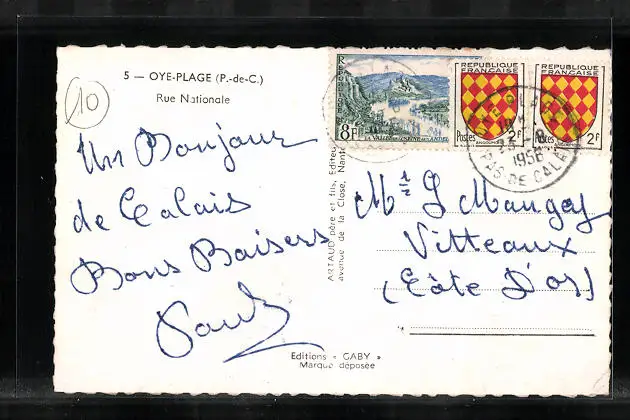 5 — OYE-PLAGE (P.-de-C.)
Rue Nationale
10
Un Bonjour
de Calais
Bons Baisers
Paul
Editions « GABY »
Marque déposée
ARTAUD père et fils, Editeurs
avenue de la Close, Nantes
8F
LA VALLÉE DE LA SEINE AUX ANDELYS
REPUBLIQUE
FRANÇAISE
Postes 2F
ANGOUMOIS
REPUBLIQUE
FRANÇAISE
Postes 2F
1956
PAS-DE-CALAIS
L Mangey
Vitteaux
(Côte D'or)